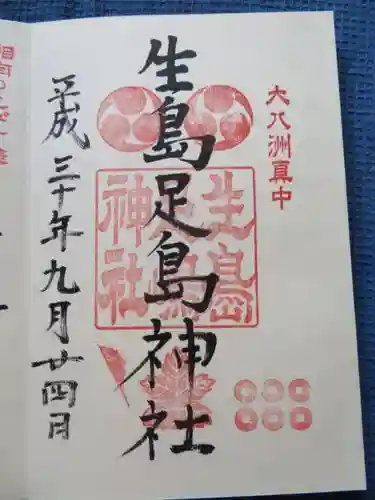 大八洲真中
生島足島神社
生島足島神社
平成三十年九月廿四日